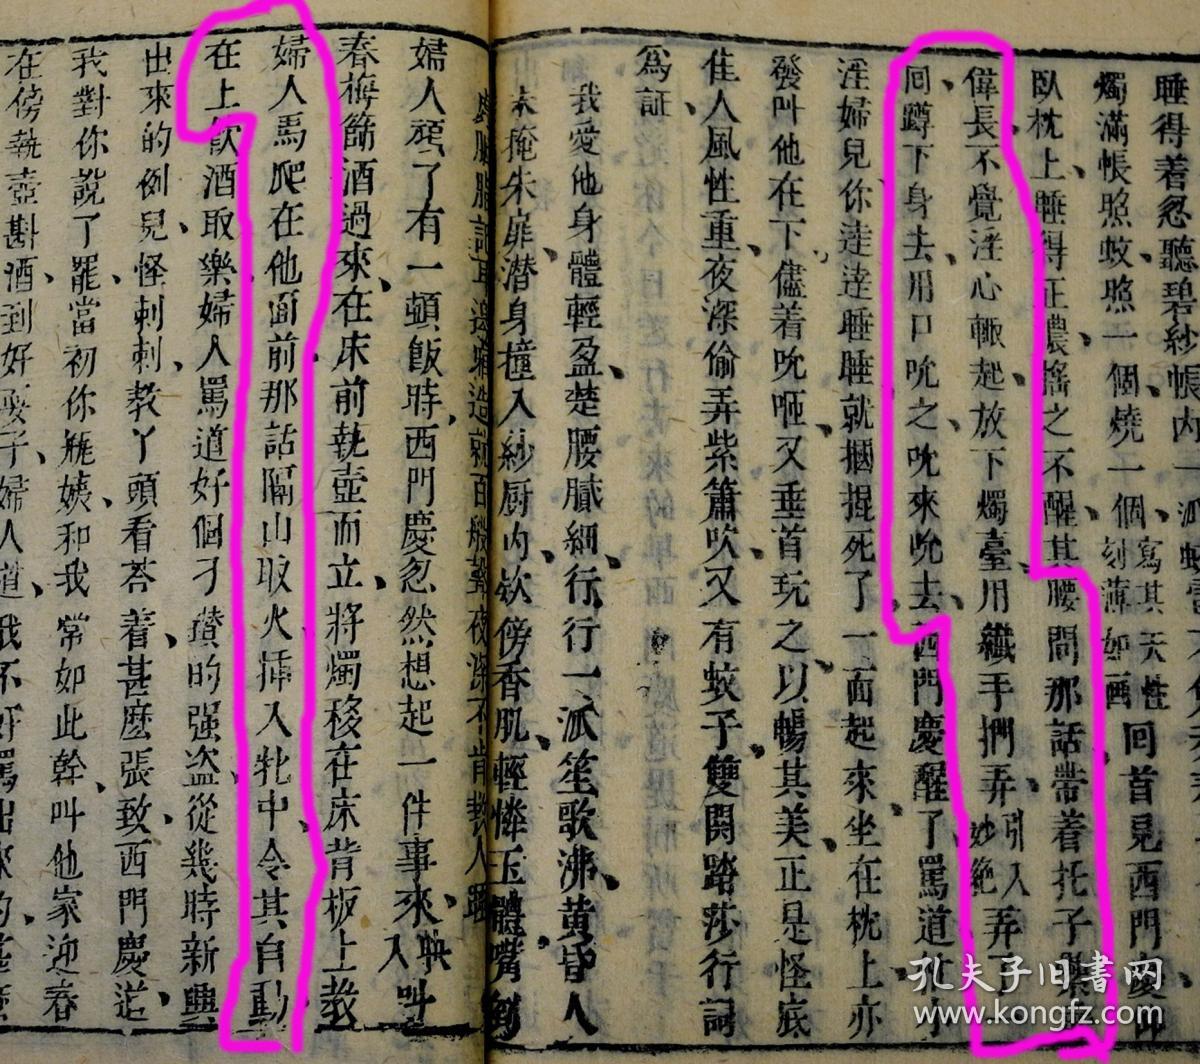 睡得着忽聽碧紗帳內一派蚊雷
燭滿帳照蚊照一個燒一個回首見西門慶仰
寫其天性
刻薄如画
臥枕上睡得正濃搖之不醒其腰間那話帶着托子
偉長不覺淫心輙起放下燭臺用纖手捫弄弄了
引入
妙絶
回蹲下身去用口吮之吮來吮去西門慶醒了罵道
淫婦兒你達達睡睡就摑掍死了一面起來坐在枕上亦
發叫他在下儘着吮咂又垂首玩之以暢其美正是怪底
佳人風性重夜深偷弄紫簫吹又有蚊子雙関踏莎行詞
爲証
我愛他身體輕盈楚腰膩細行行一派笙歌沸黄昏人
未掩朱扉潜身撞入紗厨內欵傍香肌輕憐玉體嘴到
耳邊造就百般夜深不肯教人睡
婦人頑了有一頓飯時西門慶忽然想起一件事來叫
映
入
春梅篩酒過來在床前執壺而立將燭移在床背板上教
婦人馬爬在他面前那話隔山取火挿入牝中令其自動
在上飲酒取樂婦人罵道好個刁鑽的强盗從幾時新興
出來的例兒怪剌剌教丫頭看荅着甚麽張致西門慶道
我對你說了罷當初你瓶姨和我常如此幹叫他家迎春
在傍執壺斟酒到好耍子婦人道我不好罵出來的
孔夫子旧书网
www.kongfz.com